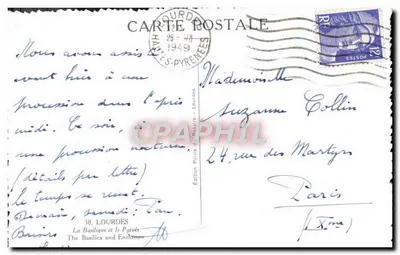 CARTE POSTALE
LOURDES
25 - 1949
HTES-PYRÉNÉES
RF
12F
POSTES
Nous avons assisté
avant hier à une
procession dans l'après
midi. Ce soir, à
une procession nocturne.
(détails par lettre)
le temps se remet.
Demain, samedi: Pau.
Baisers
38. LOURDES
La Basilique et le Parvis
The Basilica and
Mademoiselle
Suzanne Collin
24, rue des Martyrs
Paris
(IXme)
CPAPHIL.com